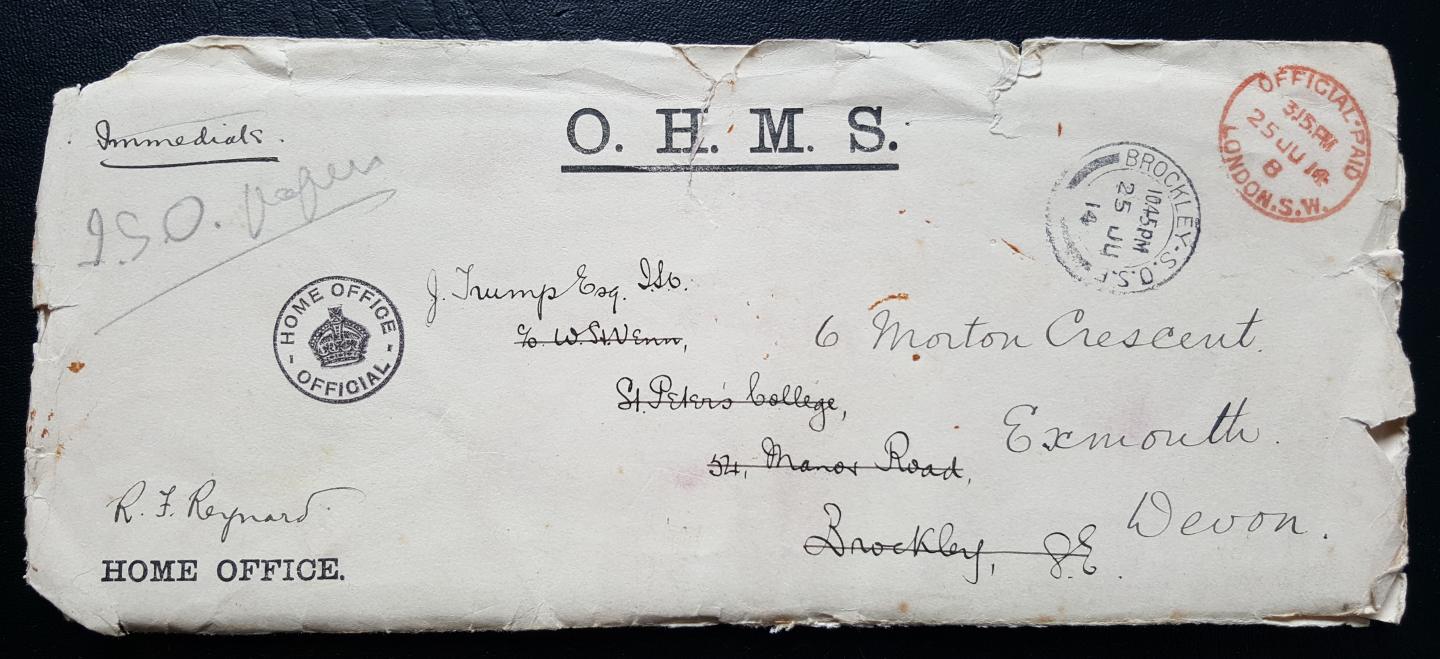 O. H. M. S.
Immediate.
I.S.O. papers
OFFICIAL PAID
3.15.PM
25 JU 14
8
LONDON.S.W.
BROCKLEY.S.O.S.E
10.45PM
25 JU
14
HOME OFFICE
OFFICIAL
J. Trump Esq. I.S.O.
c/o W. St. Venn,
St. Peter's College,
54, Manor Road,
Brockley, S.E.
6 Morton Crescent.
Exmouth.
Devon.
R. F. Reynard.
HOME OFFICE.